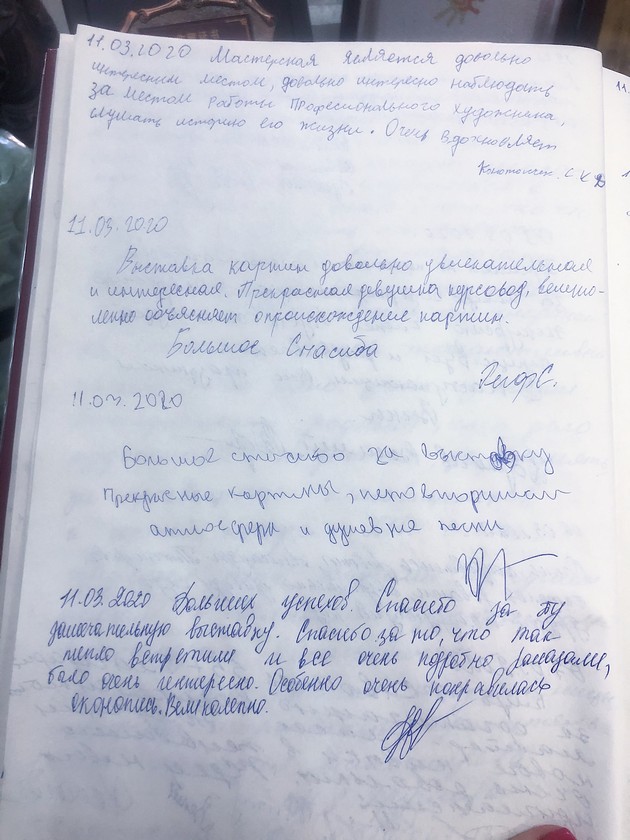 11.03.2020 Мастерская является довольно
интересным местом, довольно интересно наблюдать
за местом работы Професионального художника,
слушать историю его жизни. Очень вдохновляет
11.03.2020
Выставка картин довольно увлекательная
и интересная. Прекрасная девушка курсовод, велико-
лепно объясняет о происхождение картин.
Большое Спасиба
11.03.2020
Большое спасибо за выставку
Прекрасные картины, неповторимая
атмосфера и душевные песни
11.03.2020 Больших успехов. Спасибо за эту
замечательную выставку. Спасибо за то, что так
тепло встретили и все очень подробно рассказали,
было очень интересно. Особенно очень понравилась
иконопись. Великолепно.
11.